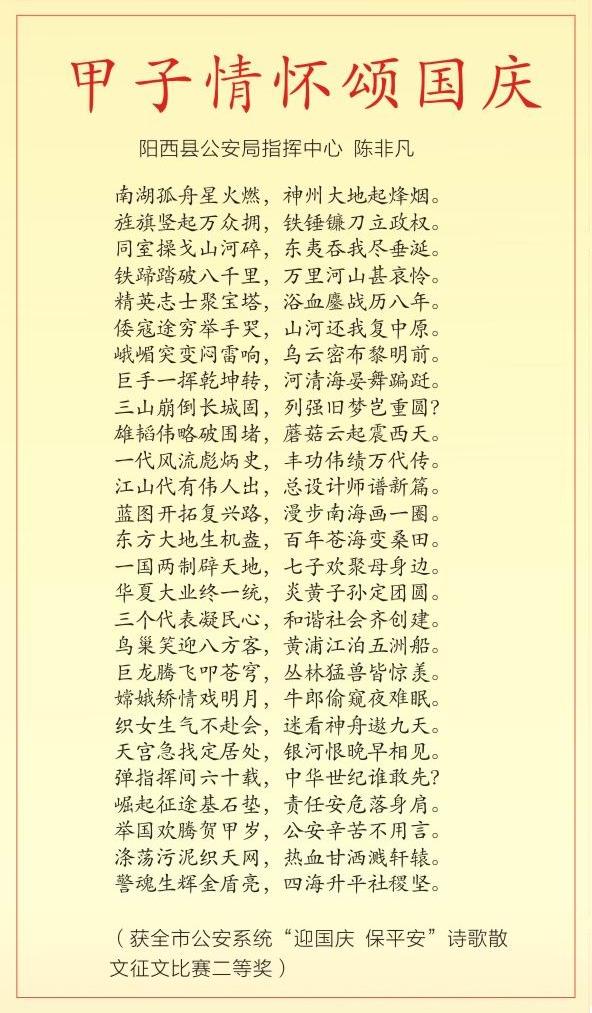 甲子情怀颂国庆
阳西县公安局指挥中心 陈非凡
南湖孤舟星火燃，神州大地起烽烟。
旌旗竖起万众拥，铁锤镰刀立政权。
同室操戈山河碎，东夷吞我尽垂涎。
铁蹄踏破八千里，万里河山甚哀怜。
精英志士聚宝塔，浴血鏖战历八年。
倭寇途穷举手哭，山河还我复中原。
峨嵋突变闷雷响，乌云密布黎明前。
巨手一挥乾坤转，河清海晏舞蹁跹。
三山崩倒长城固，列强旧梦岂重圆？
雄韬伟略破围堵，蘑菇云起震西天。
一代风流彪炳史，丰功伟绩万代传。
江山代有伟人出，总设计师谱新篇。
蓝图开拓复兴路，漫步南海画一圈。
东方大地生机盎，百年苍海变桑田。
一国两制辟天地，七子欢聚母身边。
华夏大业终一统，炎黄子孙定团圆。
三个代表凝民心，和谐社会齐创建。
鸟巢笑迎八方客，黄浦江泊五洲船。
巨龙腾飞叩苍穹，丛林猛兽皆惊羡。
嫦娥矫情戏明月，牛郎偷窥夜难眠。
织女生气不赴会，迷看神舟遨九天。
天宫急找定居处，银河恨晚早相见。
弹指挥间六十载，中华世纪谁敢先？
崛起征途基石垫，责任安危落身肩。
举国欢腾贺甲岁，公安辛苦不用言。
涤荡污泥织天网，热血甘洒溅轩辕。
警魂生辉金盾亮，四海升平社稷坚。
（获全市公安系统“迎国庆 保平安”诗歌散
文征文比赛二等奖）